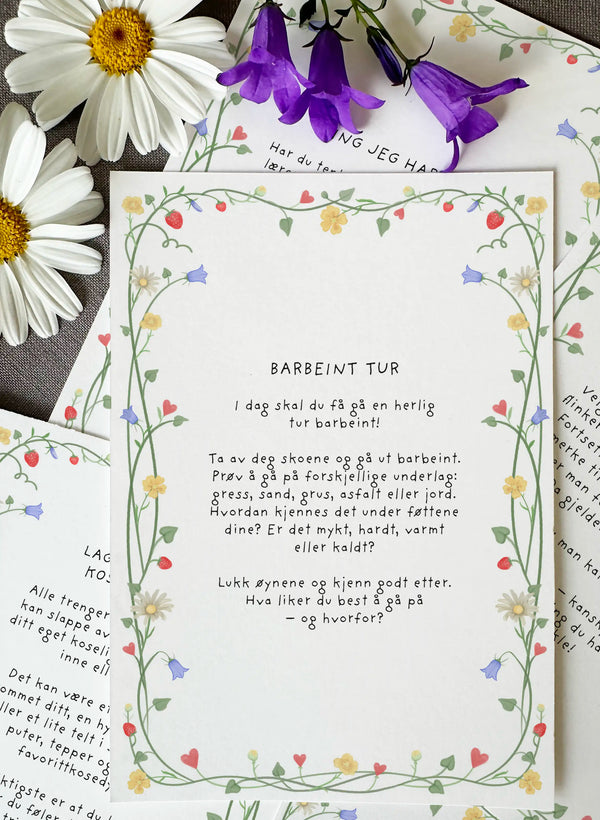 NG JEG HAR
Har du
BARBEINT TUR
I dag skal du få gå en herlig
tur barbeint!
Ta av deg skoene og gå ut barbeint.
Prøv å gå på forskjellige underlag:
gress, sand, grus, asfalt eller jord.
Hvordan kjennes det under føttene
dine? Er det mykt, hardt, varmt
eller kaldt?
Lukk øynene og kjenn godt etter.
Hva liker du best å gå på
– og hvorfor?
LAG
KOS
Alle trenger
kan slappe av
ditt eget koseli
inne ell
Det kan være et
ommet ditt, en hy
ller et lite telt i
puter, tepper og
favorittkosedy
ktigste er at du
r du føler
Ve
flinker
Fortset
merke ti
er man f
på gjelder
man kan
– kansk
ng du ha
kle!